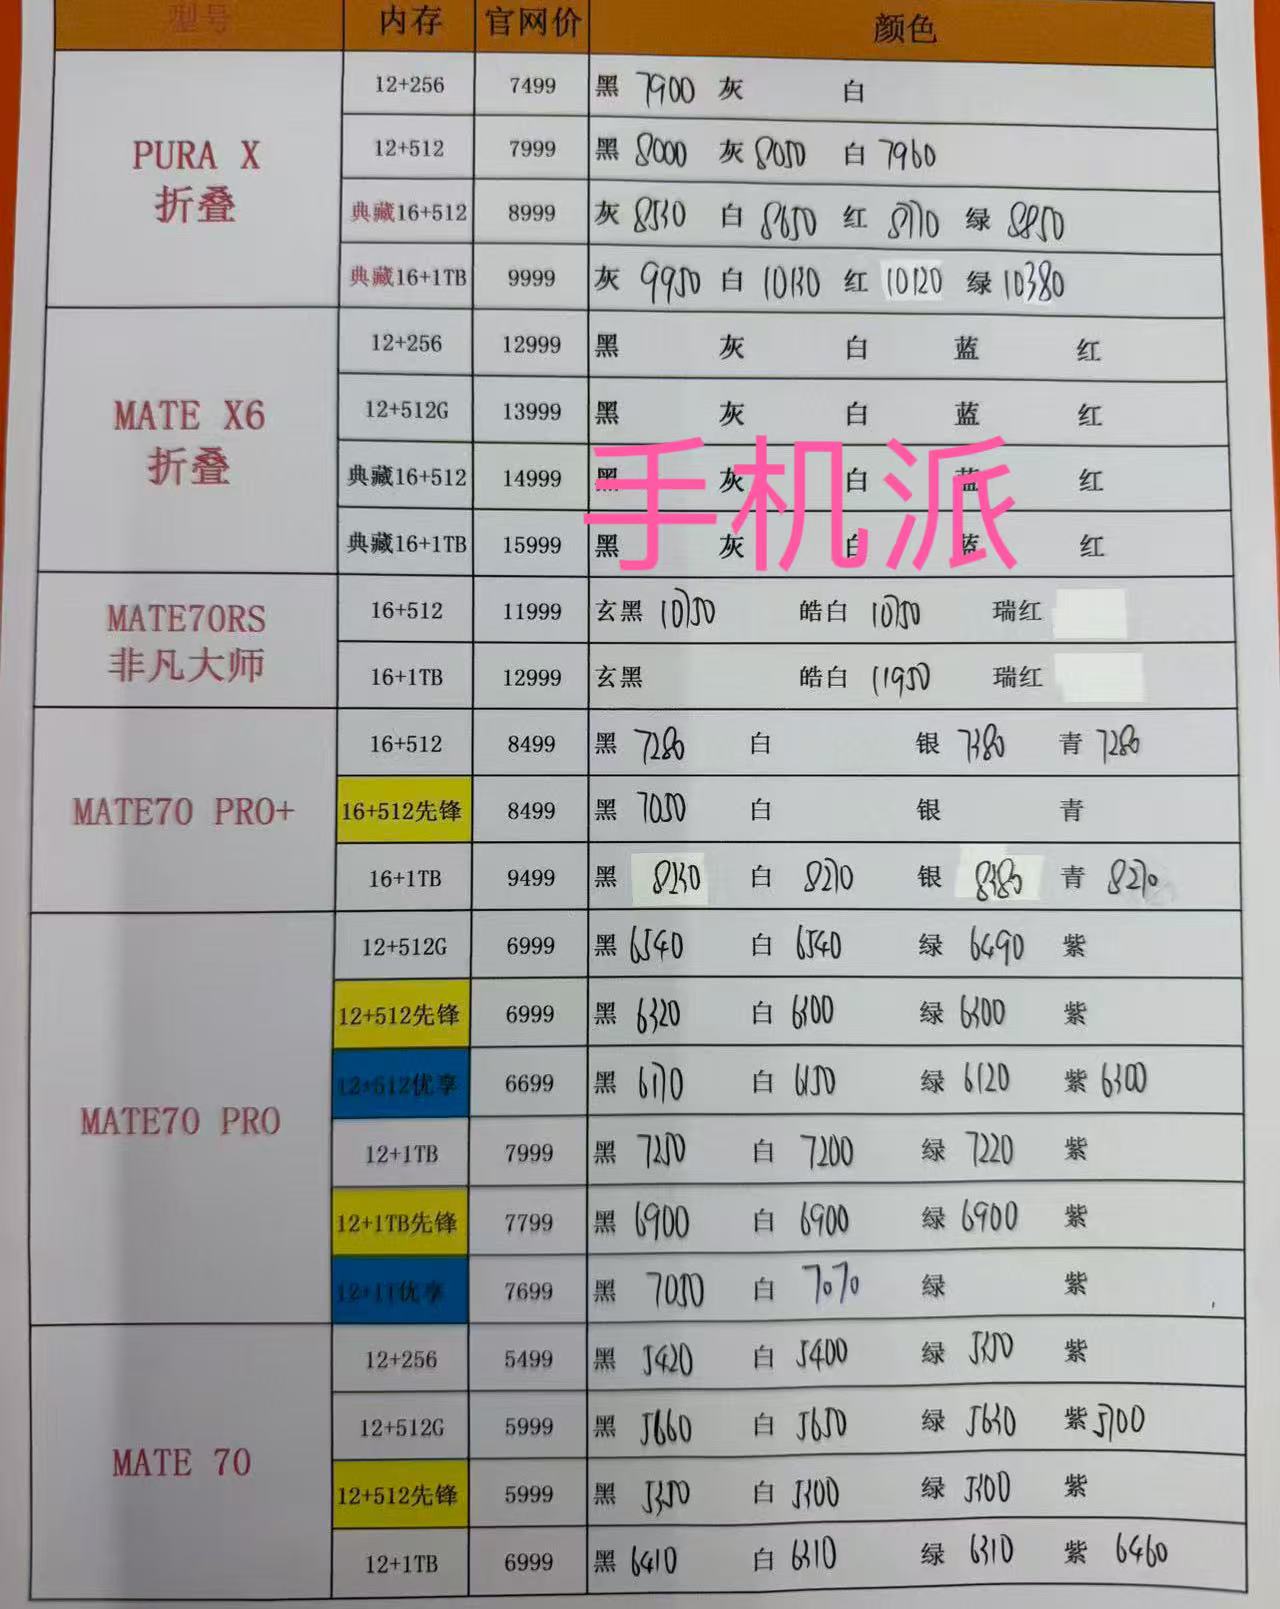 型号 内存 官网价 颜色
PURA X 折叠
12+256 7499 黑 7900 灰 白
12+512 7999 黑 8000 灰 8050 白 7960
典藏16+512 8999 灰 白 8650 红 绿 8850
典藏16+1TB 9999 灰 9950 白 红 10120 绿 10380
MATE X6 折叠
12+256 12999 黑 灰 白 蓝 红
12+512G 13999 黑 灰 白 蓝 红
典藏16+512 14999 黑 灰 白 蓝 红
手机派
典藏16+1TB 15999 黑 灰 白 蓝 红
MATE70RS 非凡大师
16+512 11999 玄黑 皓白 瑞红
16+1TB 12999 玄黑 皓白 11950 瑞红
MATE70 PRO+
16+512 8499 黑 7280 白 银 7380 青 7280
16+512先锋 8499 黑 7050 白 银 青
16+1TB 9499 黑 白 8270 银 8380 青 8270
MATE70 PRO
12+512G 6999 黑 6540 白 6540 绿 6490 紫
12+512先锋 6999 黑 6320 白 6300 绿 6300 紫
12+512优享 6699 黑 6170 白 6150 绿 6120 紫 6300
12+1TB 7999 黑 7250 白 7200 绿 7220 紫
12+1TB先锋 7799 黑 6900 白 6900 绿 6900 紫
12+1T优享 7699 黑 7050 白 7070 绿 紫
MATE 70
12+256 5499 黑 5420 白 5400 绿 5350 紫
12+512G 5999 黑 5660 白 5650 绿 5630 紫 5700
12+512先锋 5999 黑 5350 白 5300 绿 5300 紫
12+1TB 6999 黑 6410 白 6310 绿 6310 紫 6460